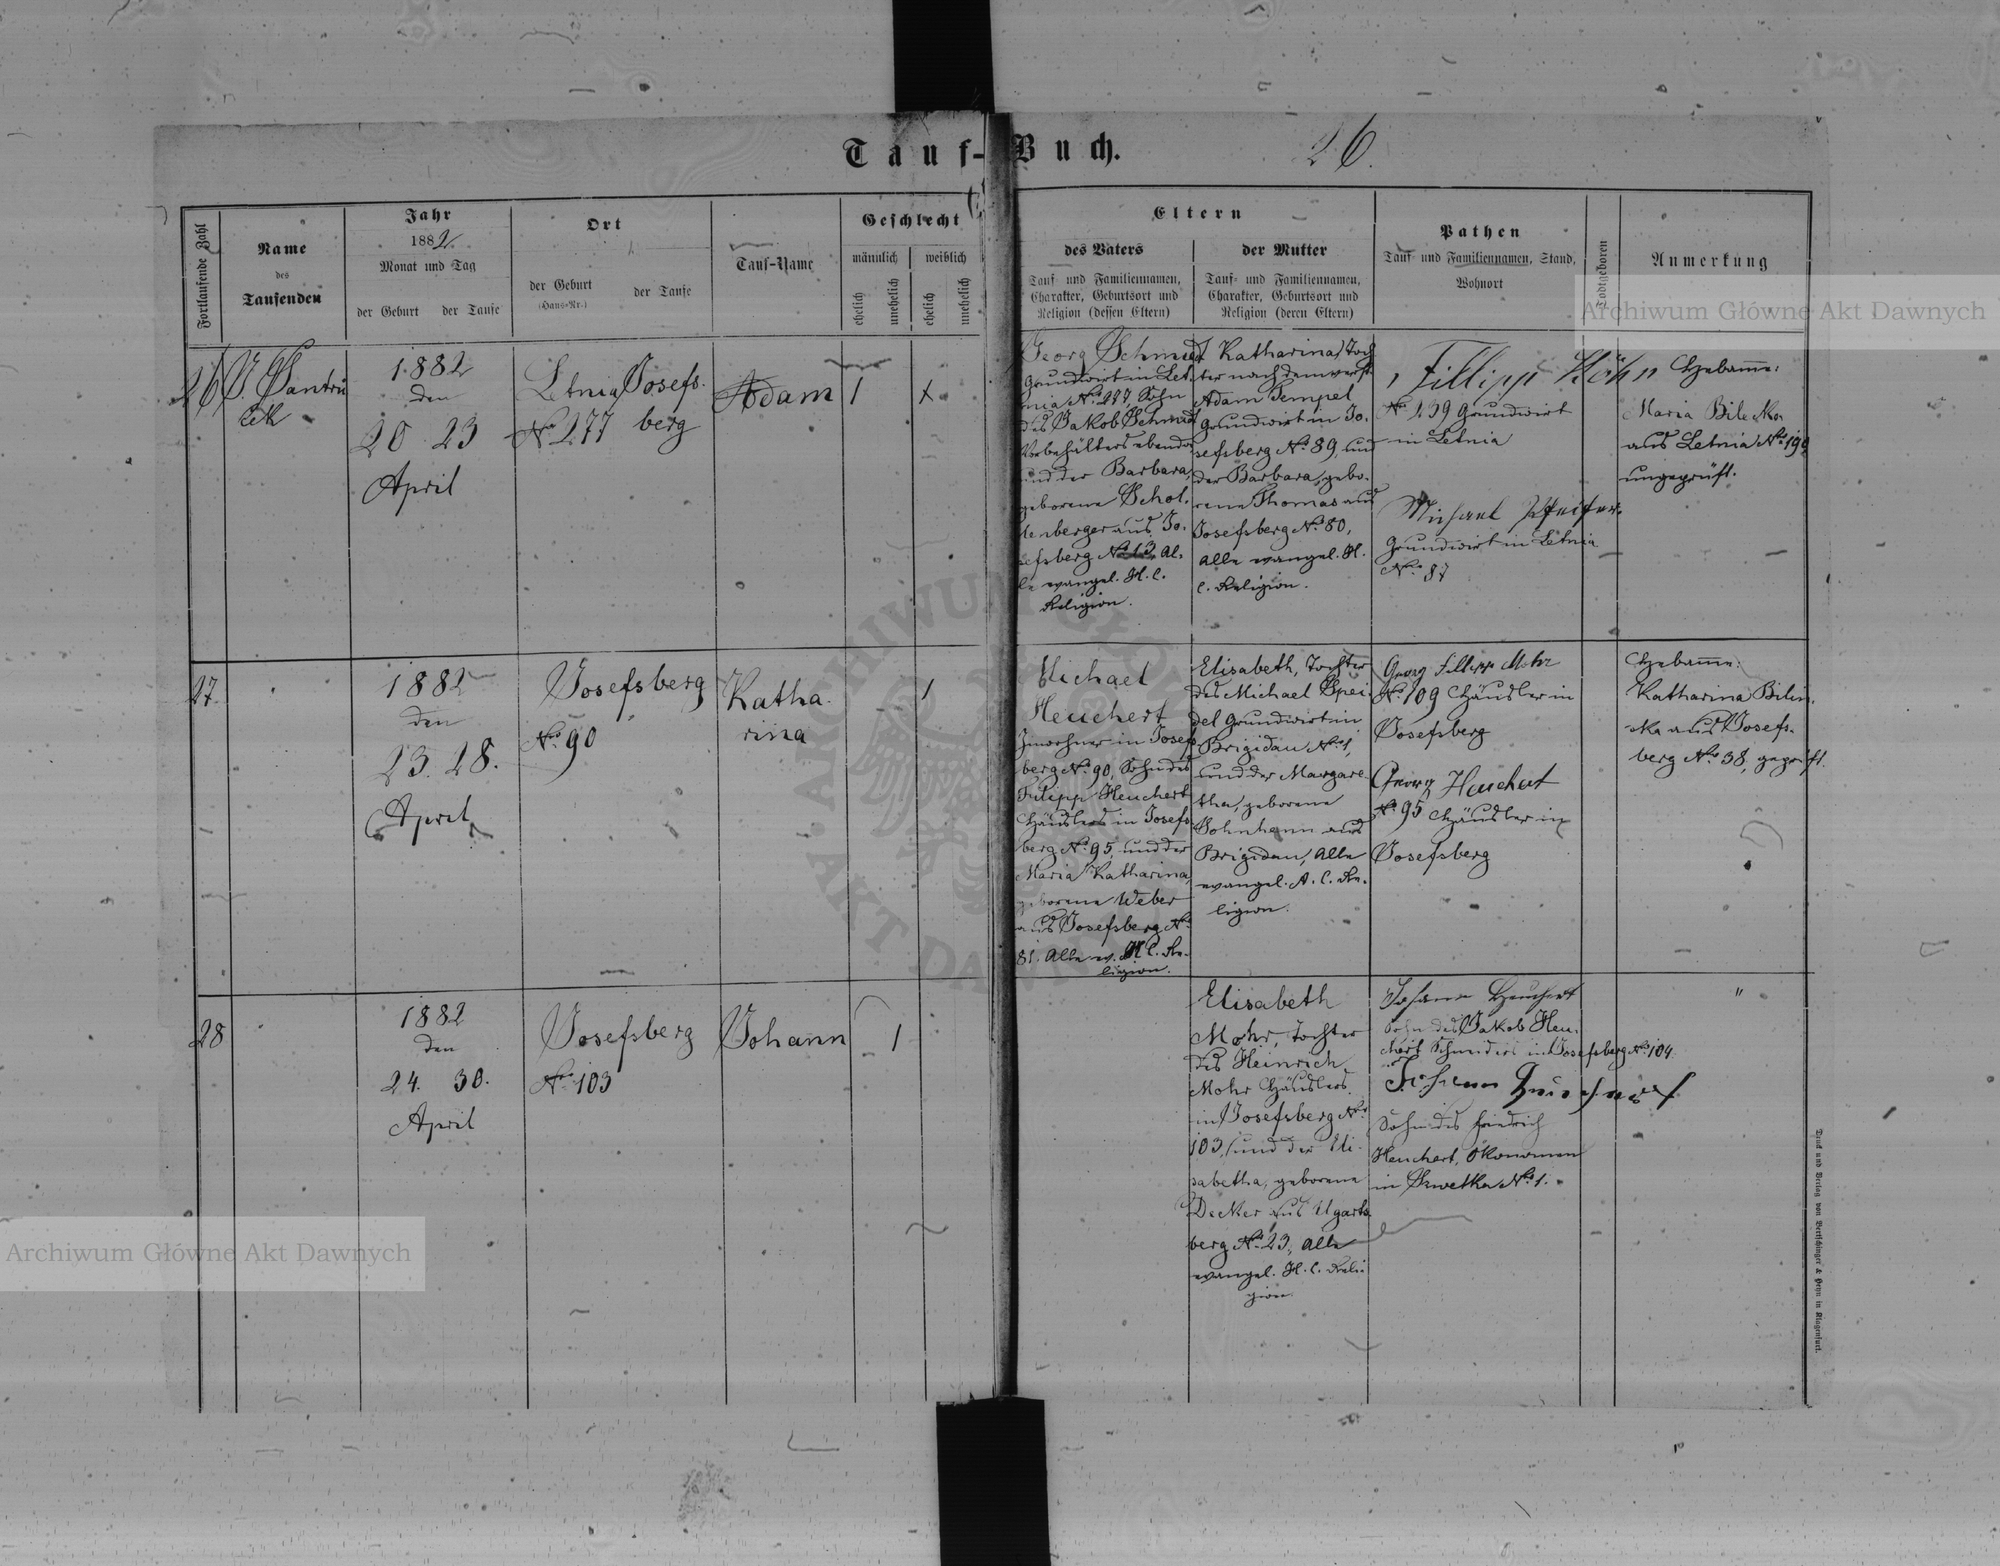 Tauf-Buch.
26.
Fortlaufende Zahl
Name
des
Taufenden
Jahr
1882
Monat und Tag
der Geburt
der Taufe
Ort
der Geburt
(Haus-Nr.)
der Taufe
Tauf-Name
Geschlecht
männlich
weiblich
ehelich
unehelich
ehelich
unehelich
Eltern
des Vaters
Tauf- und Familiennamen,
Charakter, Geburtsort und
Religion (dessen Eltern)
der Mutter
Tauf- und Familiennamen,
Charakter, Geburtsort und
Religion (deren Eltern)
Pathen
Tauf- und Familiennamen, Stand,
Wohnort
Todtgeboren
Anmerkung
26
1882
den
20 23
April
Letnia
No 277
Josefs-
berg
Adam
1
Georg Schmidt
Grundwirt in Let-
nia No 277, Sohn
des Jakob Schmidt
ebendort
und der Barbara,
geborene Schol-
lenberger aus Jo-
sefsberg No 13, Al-
le evangel. H. C.
Religion.
Katharina, Toch-
ter nach dem verst.
Adam Tempel
Grundwirt in Jo-
sefsberg No 89, und
der Barbara, gebo-
rene Thomas aus
Josefsberg No 80,
Alle evangel. H.
C. Religion.
Fillipp Köhn
No 139 Grundwirt
in Letnia
Michael Pfeifer
Grundwirt in Letnia
No 87
Hebamme:
Maria Bilecka
aus Letnia No 199
ungeprüft.
27.
1882
den
23. 28.
April
Josefsberg
No 90
Katha-
rina
1
Michael
Heuchert
Inwohner in Josefs-
berg No 90, Sohn des
Filipp Heuchert
Häuslers in Josefs-
berg No 95, und der
Maria Katharina,
geborene Weber
aus Josefsberg No
81. Alle ev. H. C. Re-
ligion.
Elisabeth, Tochter
des Michael Spei-
del Grundwirt in
Brigidau No 1,
und der Margare-
tha, geborene
aus
Brigidau, Alle
evangel. A. C. Re-
ligion.
Georg Fillipp Mohr
No 109 Häusler in
Josefsberg
Georg Heuchert
No 95 Häusler in
Josefsberg
Hebamme:
Katharina Bilin-
ska aus Josefs-
berg No 38, geprüft.
28
1882
den
24. 30.
April
Josefsberg
No 103
Johann
1
Elisabeth
Mohr, Tochter
des Heinrich
Mohr Häuslers
in Josefsberg No
103, und der Eli-
sabetha, geborene
Decker aus Ugarts-
berg No 23, Alle
evangel. H. C. Reli-
gion.
Johann Heuchert
Sohn des Jakob Heu-
chert Schneiders in Josefsberg No 104.
Johann Heuchert
Sohn des Friedrich
Heuchert, Ökonomen
in No 1.
"
Druck und Verlag von Bertschinger & Heyn in Klagenfurt.
Archiwum Główne Akt Dawnych
Archiwum Główne Akt Dawnych
ARCHIWUM GŁÓWNE
AKT DAWNYCH